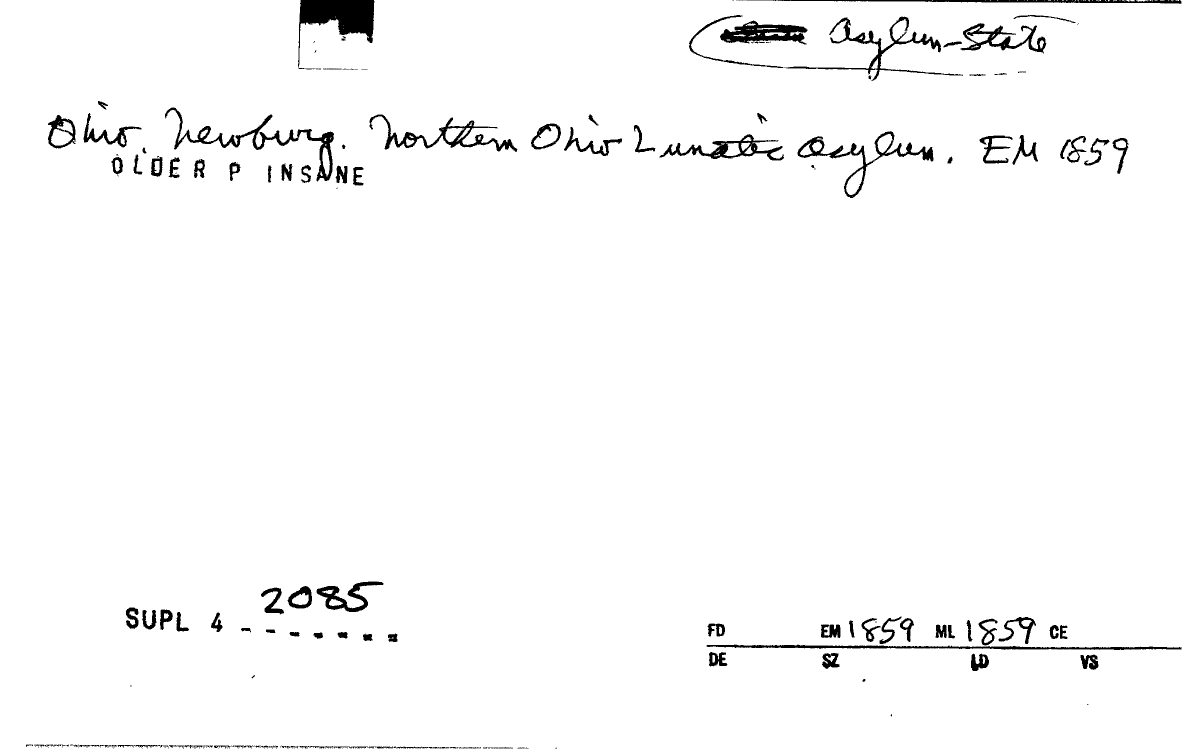 Asylum-State
Ohio. Newburg. Northern Ohio Lunatic Asylum. EM 1859
OLDER P INSANE
2085
SUPL 4
FD EM 1859 ML 1859 CE
DE SZ LD VS